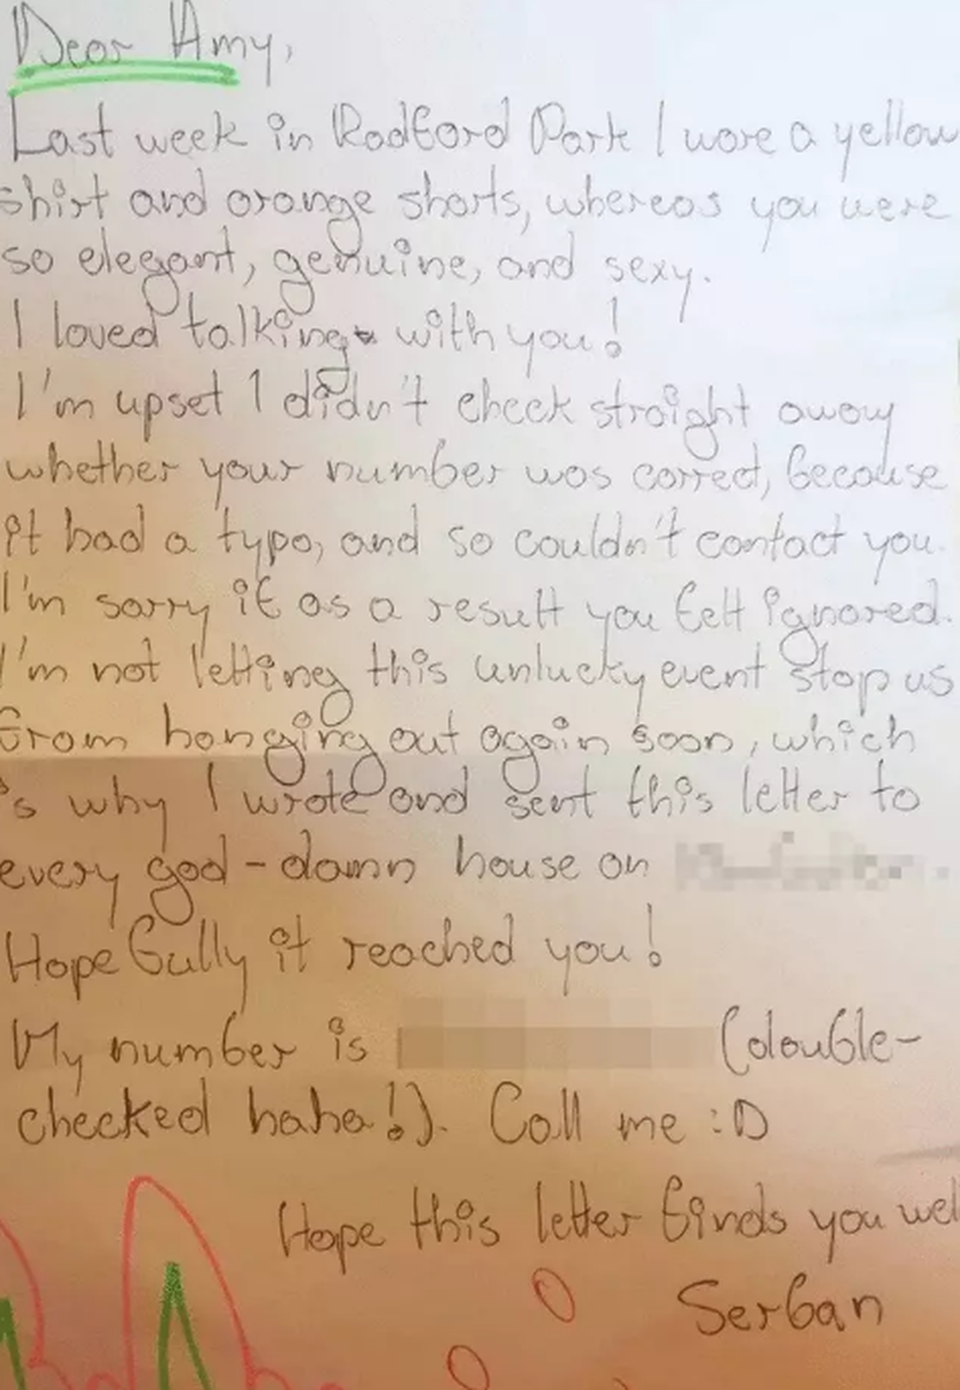 Dear Amy,
Last week in Radford Park I wore a yellow
shirt and orange shorts, whereas you were
so elegant, genuine, and sexy.
I loved talking with you!
I'm upset I didn't check straight away
whether your number was correct, because
it had a typo, and so couldn't contact you.
I'm sorry if as a result you felt ignored.
I'm not letting this unlucky event stop us
from hanging out again soon, which
's why I wrote and sent this letter to
every god-damn house on
Hopefully it reached you!
My number is (double-
checked haha!). Call me :D
Hope this letter finds you wel
Serban